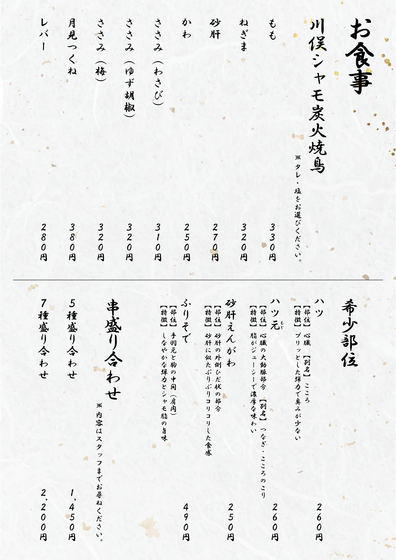 お食事
川俣シャモ炭火焼鳥
※タレ・塩をお選びください。
もも 330円
ねぎま 320円
砂肝 270円
かわ 250円
ささみ（わさび） 310円
ささみ（ゆず胡椒） 320円
ささみ（梅） 320円
月見つくね 380円
レバー 280円
希少部位
ハツ 260円
【部位】心臓 【別名】こころ
【特徴】プリッとした弾力で臭みが少ない
ハツ元 もと 260円
【部位】心臓の大動脈部分 【別名】つなぎ・こころのこり
【特徴】脂がジューシーで濃厚な味わい
砂肝えんがわ 250円
【部位】砂肝の外側ひだ状の部分
【特徴】砂肝に似たぷりぷりコリコリした食感
ふりそで 490円
【部位】手羽元と胸の中間（肩肉）
【特徴】しなやかな弾力とシャモ脂の旨味
串盛り合わせ
※内容はスタッフまでお尋ねください。
5種盛り合わせ 1,450円
7種盛り合わせ 2,200円